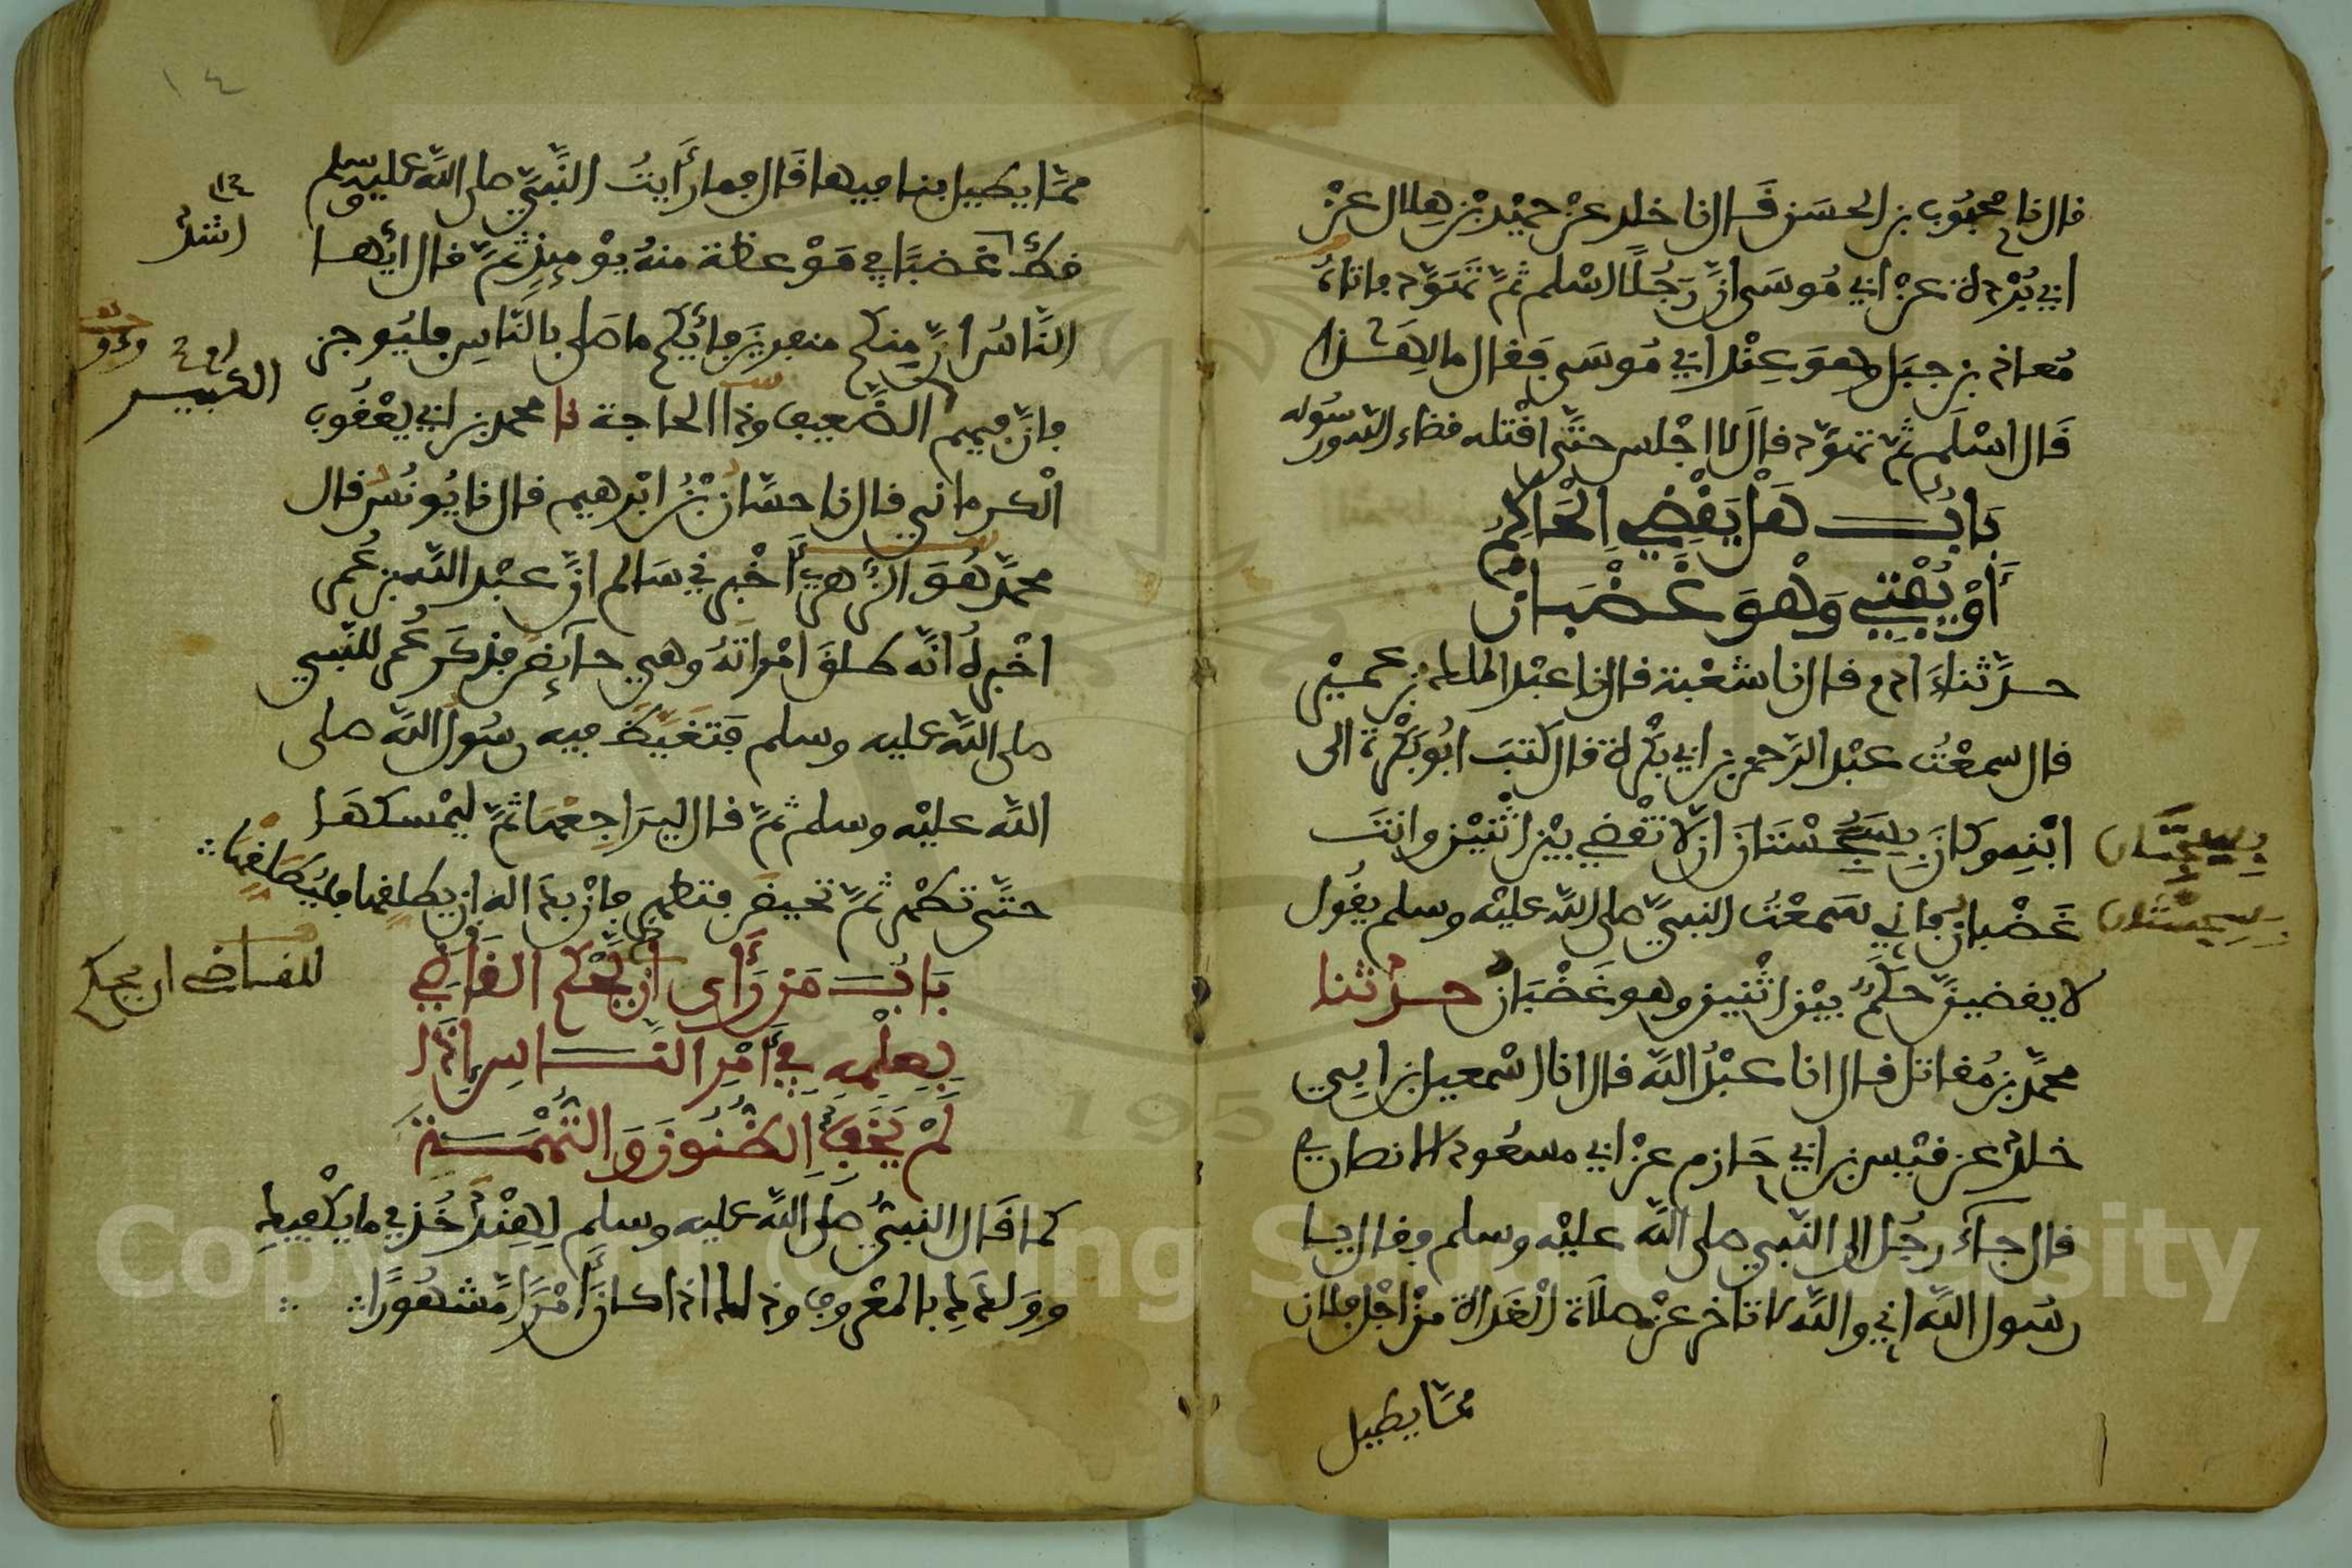 قال نا محبوب بن الحسن قال نا خلد عن حميد بن هلال عن
ابي بردة عن ابي موسى ان رجلا اسلم ثم تهود فاتاه
معاذ بن جبل وهو عند ابي موسى فقال ما لهذا
قال اسلم ثم تهود قال لا اجلس حتى اقتله قضاء الله ورسوله
باب هل يقضي الحاكم
أو يفتي وهو غضبان
حدثنا ادم قال نا شعبة قال نا عبد الملك بن عمير
قال سمعت عبد الرحمن بن ابي بكرة قال كتب ابو بكرة الى
ابنه وكان بسجستان ان لا تقضي بين اثنين وانت
بسجستان
غضبان فاني سمعت النبي صلى الله عليه وسلم يقول
بسجستان
لا يقضين حكم بين اثنين وهو غضبان حدثنا
محمد بن مقاتل قال انا عبد الله قال انا اسمعيل بن ابي
خلد عن قيس بن ابي حازم عن ابي مسعود الانصاري
قال جاء رجل الى النبي صلى الله عليه وسلم فقال يا
رسول الله اني والله لا تاخر عن صلاة الغداة من اجل فلان
مما يطيل
١٤
مما يطيل بنا فيها قال فما رأيت النبي صلى الله عليه وسلم
قط غضبا في موعظة منه يومئذ ثم قال ايها
اشد
الناس ان منكم منفرين فأيكم ما صلى بالناس فليوجز
فان فيهم الضعيف وذا الحاجة نا محمد بن ابي يعقوب
الكبير
الكرماني قال نا حسان بن ابرهيم قال نا يونس قال
محمد هو الزهري أخبرني سالم ان عبد الله بن عمر
اخبره انه طلق امراته وهي حائض فذكر عمر للنبي
صلى الله عليه وسلم فتغيظ فيه رسول الله صلى
الله عليه وسلم ثم قال ليراجعها ثم ليمسكها
حتى تطهر ثم تحيض فتطهر فان بدا له ان يطلقها فليطلقها
باب من رأى ان يحكم القاضي
للقاضي ان يحكم
بعلمه في أمر الناس اذا
لم يخف الظنون والتهمة
كما قال النبي صلى الله عليه وسلم لهند خذي ما يكفيك
وولدك بالمعروف وذلك اذا كان أمرا مشهورا
Copyright © King Saud University
195